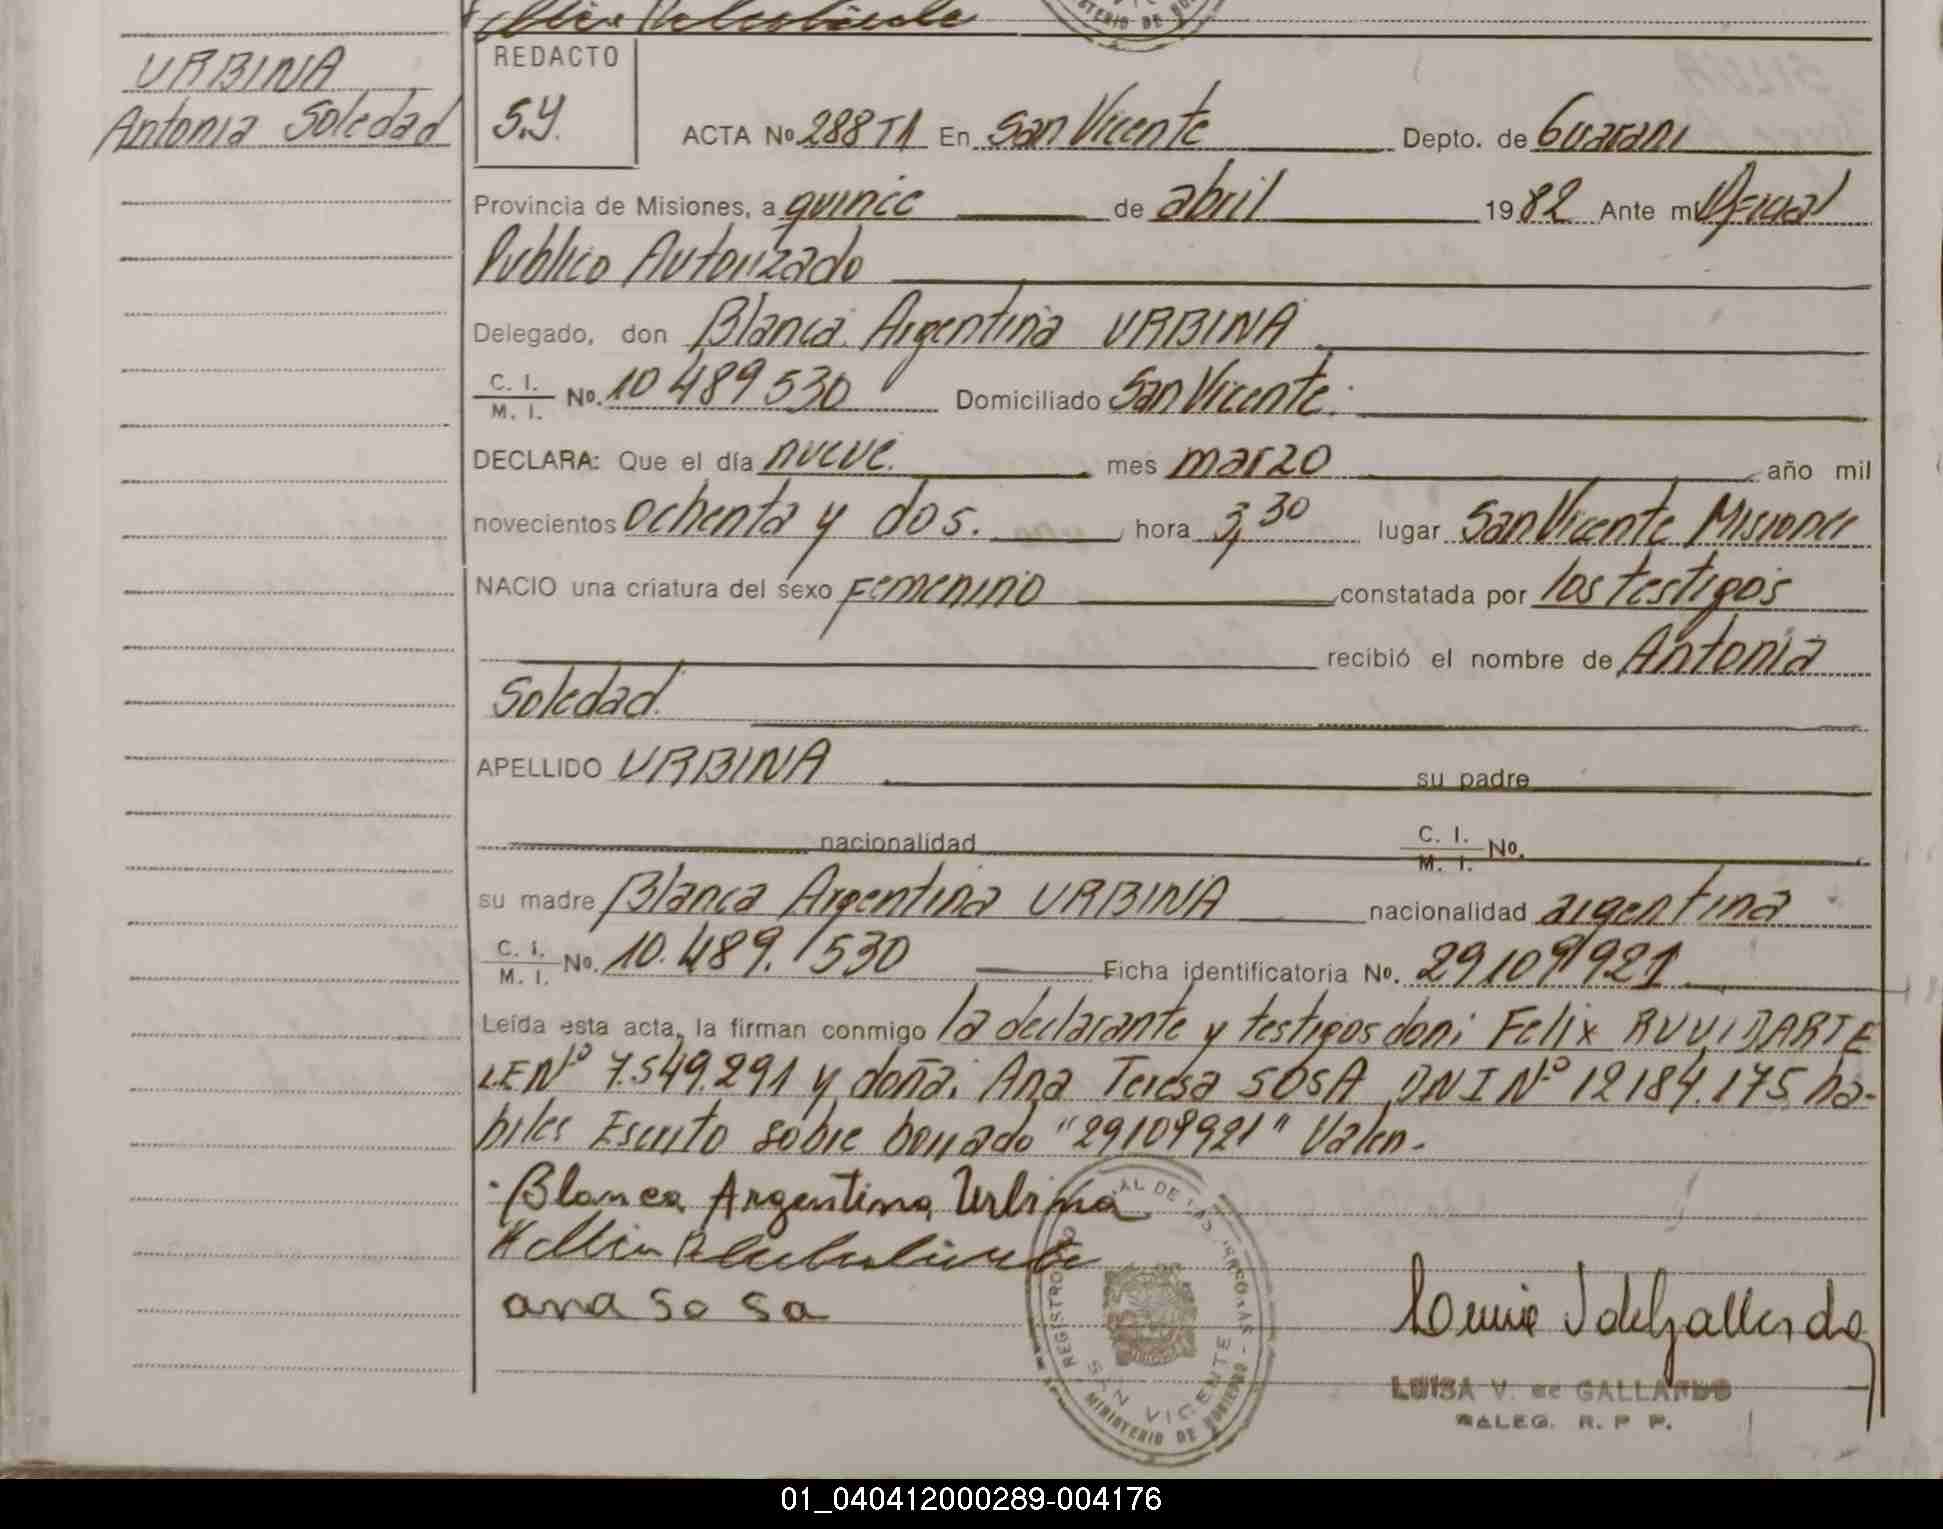 URBINA
Antonia Soledad
REDACTO
S.Y.
ACTA No. 288 T1 En San Vicente Depto. de Guarani
Provincia de Misiones, a quince de abril 1982 Ante mi Oficial
Publico Autorizado
Delegado, don Blanca Argentina URBINA
C. I. / M. I. No. 10 489 530 Domiciliado San Vicente.
DECLARA: Que el día nueve. mes marzo año mil
novecientos ochenta y dos. hora 3,30 lugar San Vicente Misiones
NACIO una criatura del sexo Femenino constatada por los testigos
recibió el nombre de Antonia
Soledad.
APELLIDO URBINA su padre
nacionalidad C. I. / M. I. No.
su madre Blanca Argentina URBINA nacionalidad argentina
C. I. / M. I. No. 10.489.530 Ficha identificatoria No. 29109921
Leída esta acta, la firman conmigo la declarante y testigos don: Felix RUVIDARTE
LE Nº 7.549.291 y doña: Ana Teresa SOSA DNI Nº 12184.175 ha-
biles Escrito sobre borrado "29109921" Valen.
Blanca Argentina Urbina
ana Sosa
SAN VICENTE
MINISTERIO DE GOBIERNO
LUISA V. de GALLARDO
DELEG. R. P. P.
01_040412000289-004176